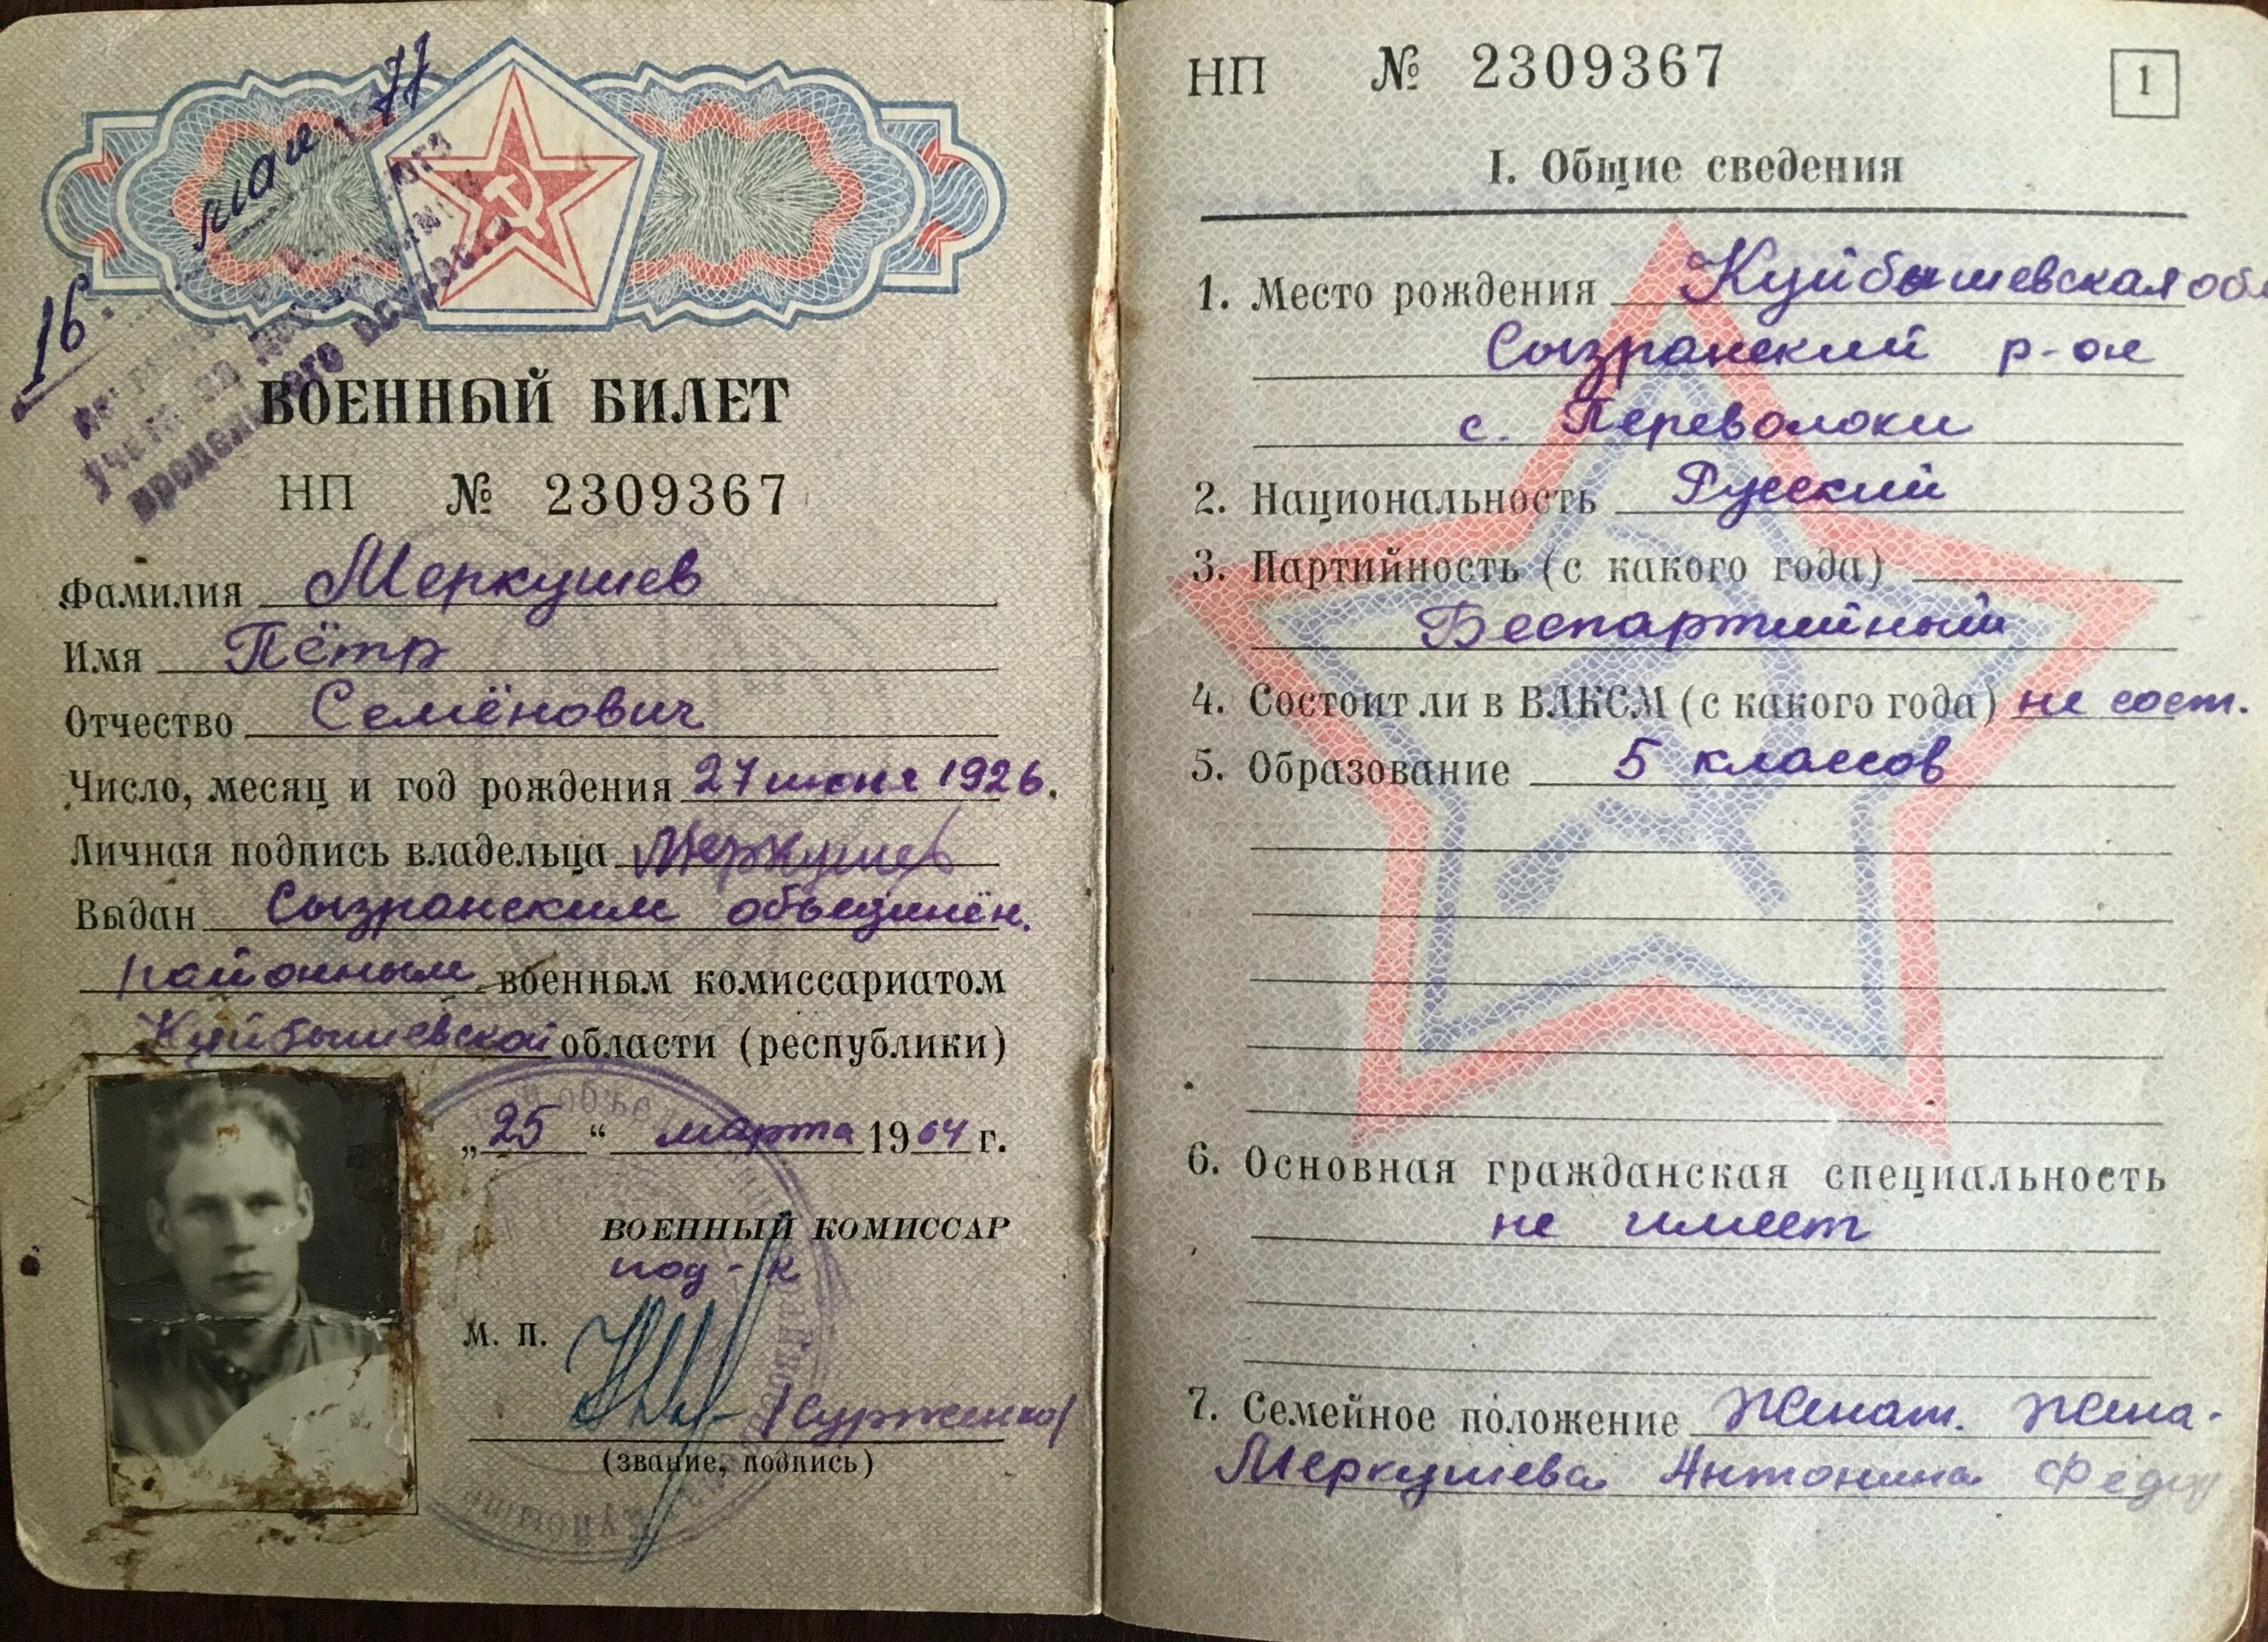 16 мая 77
ВОЕННЫЙ БИЛЕТ
НП № 2309367
Фамилия Меркушев
Имя Пётр
Отчество Семёнович
Число, месяц и год рождения 27 июня 1926.
Личная подпись владельца Меркушев
Выдан Сызранским объединён.
районным военным комиссариатом
Куйбышевской области (республики)
„25“ марта 1964 г.
ВОЕННЫЙ КОМИССАР
под-к
М. П.
/Сурженко/
(звание, подпись)
НП № 2309367
1
I. Общие сведения
1. Место рождения Куйбышевская обл
Сызранский р-он
с. Переволоки
2. Национальность Русский
3. Партийность (с какого года)
Беспартийный
4. Состоит ли в ВЛКСМ (с какого года) не сост.
5. Образование 5 классов
6. Основная гражданская специальность
не имеет
7. Семейное положение Женат. Жена-
Меркушева Антонина Фёдор